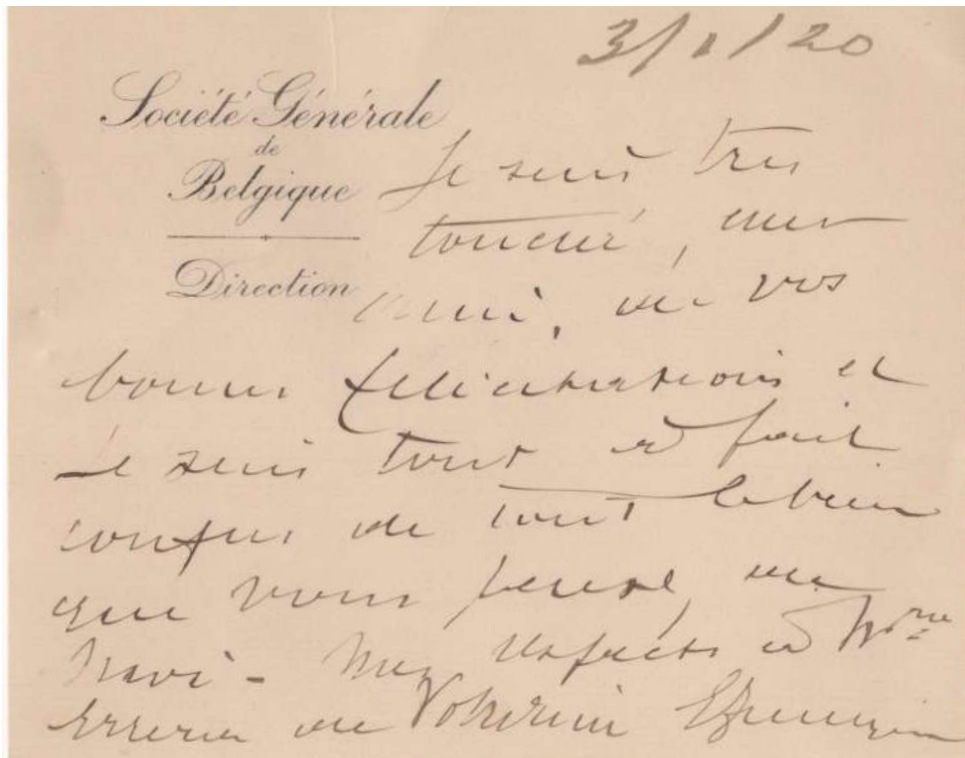 3/1/20
Société Générale
de
Belgique
Direction
Je suis très
touché, mon
ami, de vos
bonnes félicitations et
je suis tout à fait
confus de tout le bien
que vous pensez de
moi - Mes respects à Mme
Errera et